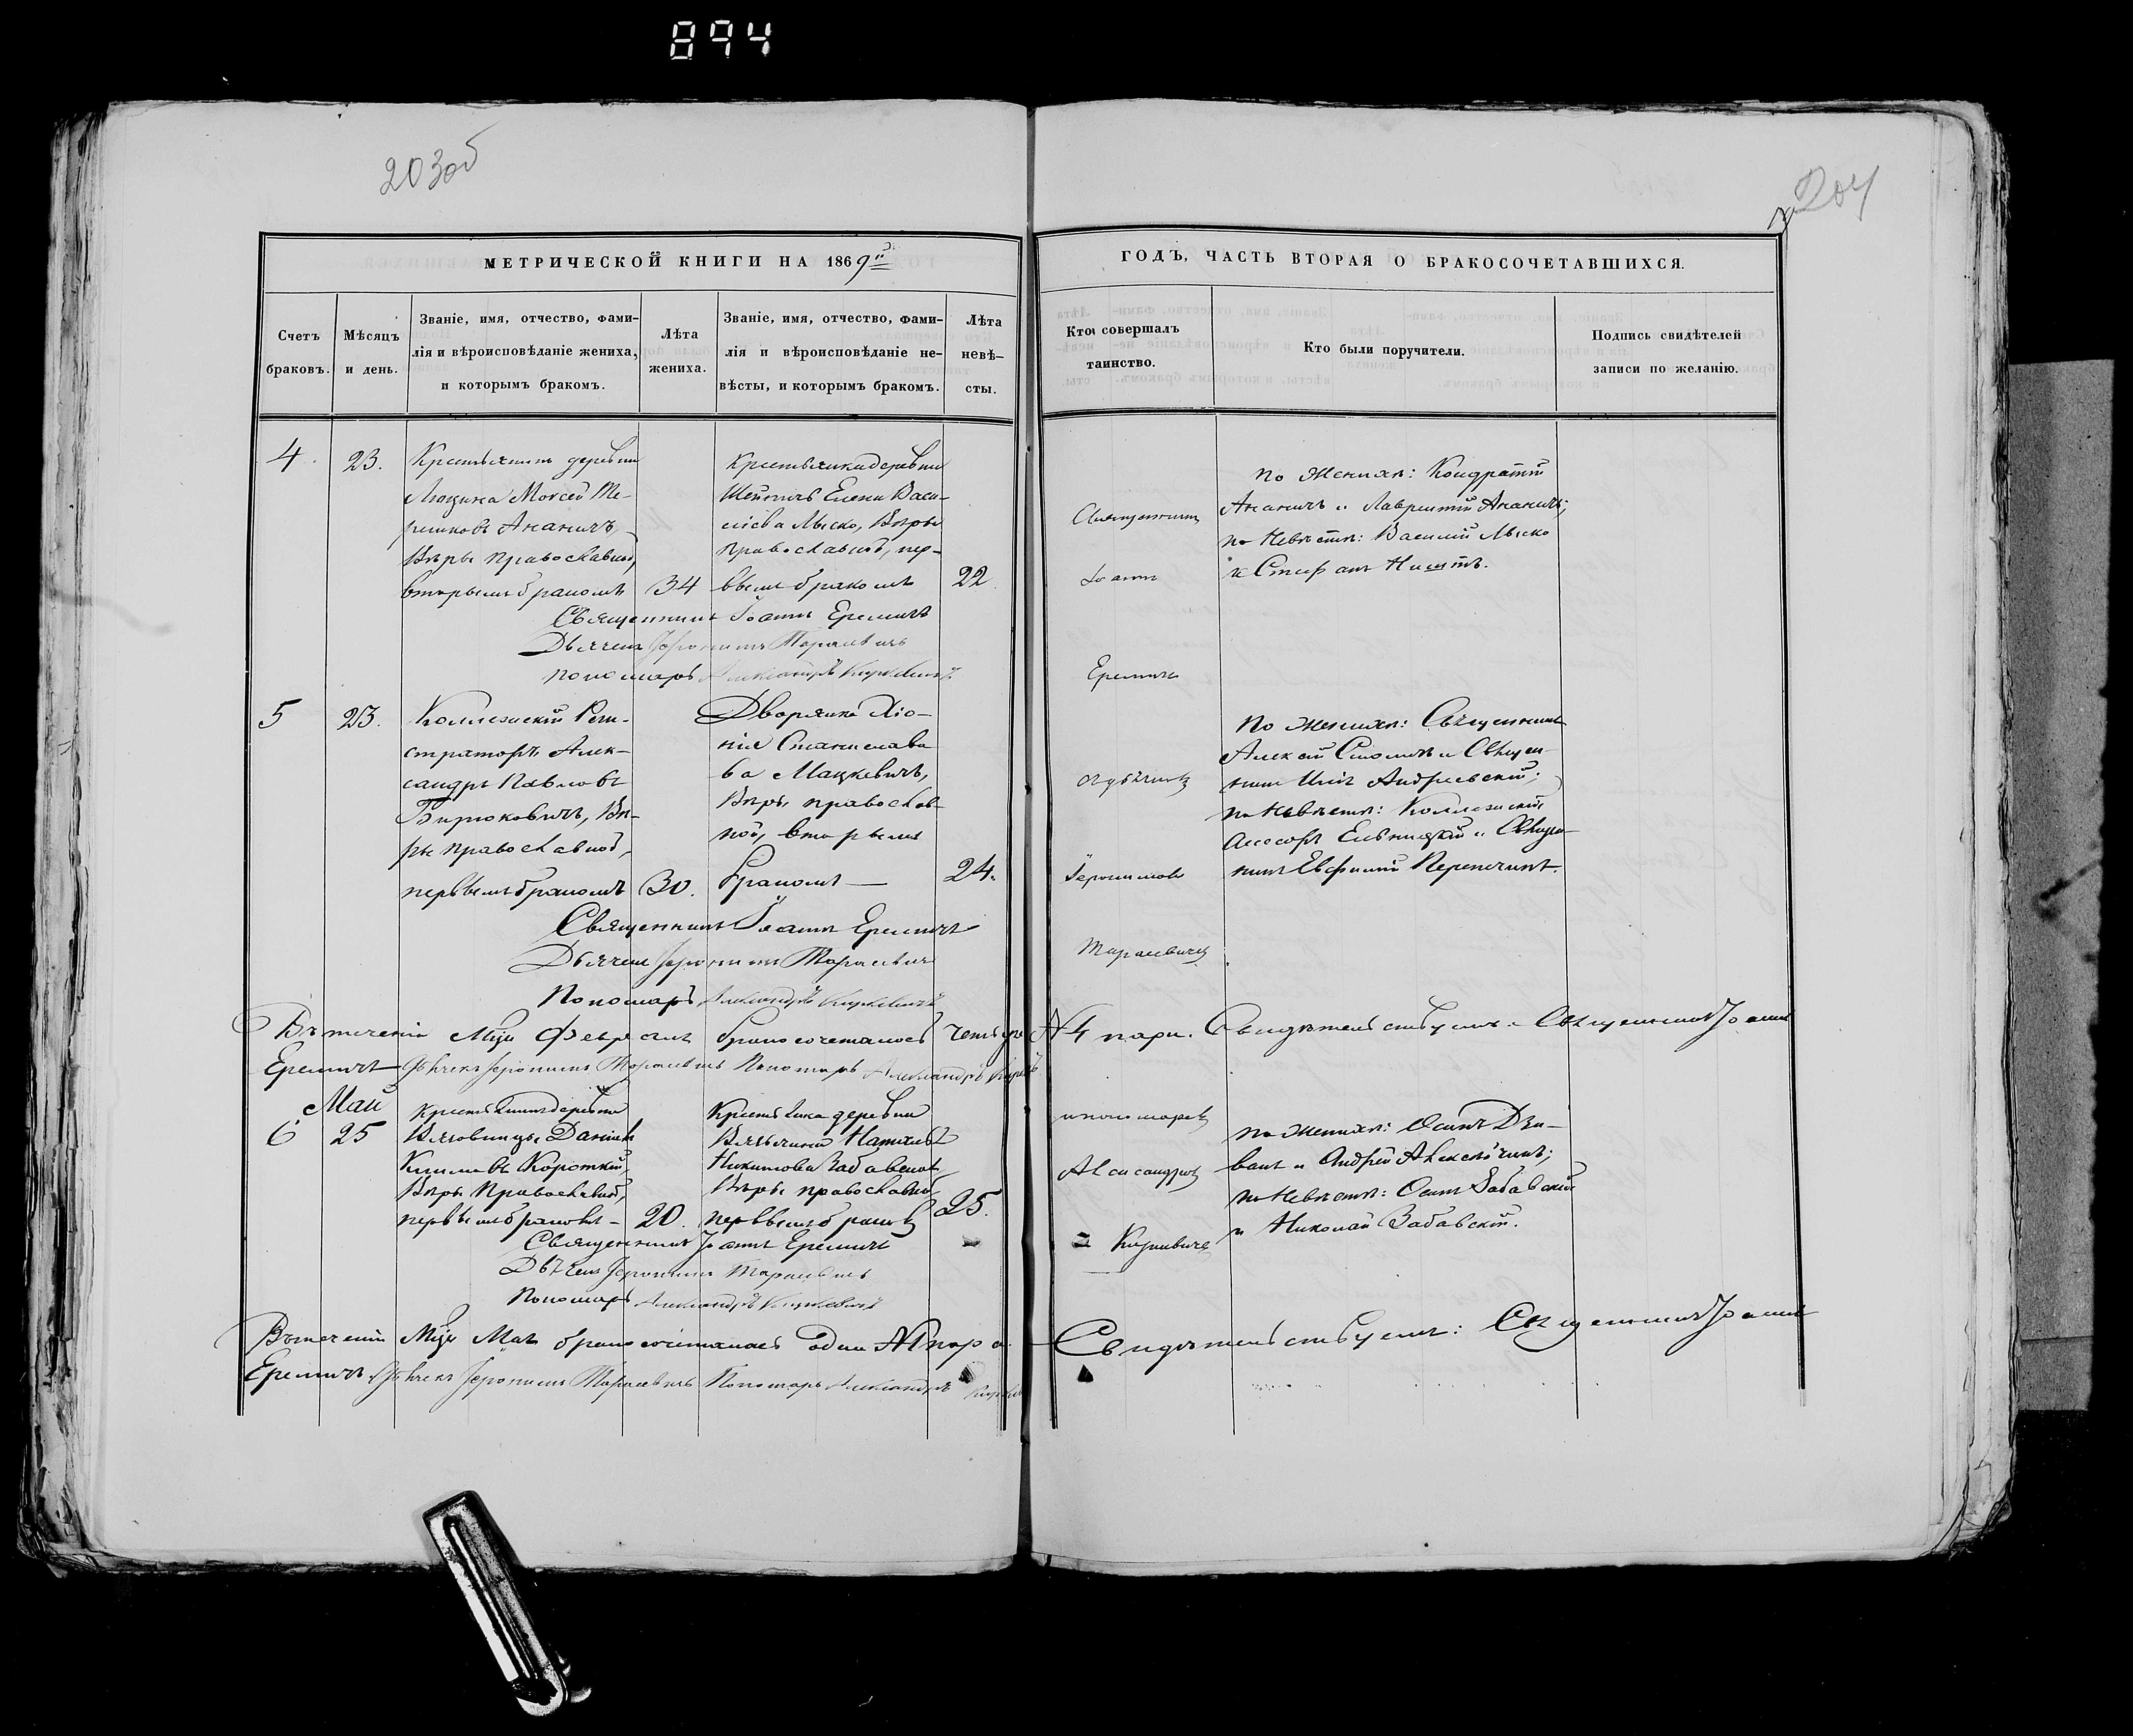 894
203об
204
МЕТРИЧЕСКОЙ КНИГИ НА 1869й
ГОДЪ, ЧАСТЬ ВТОРАЯ О БРАКОСОЧЕТАВШИХСЯ.
Счетъ браковъ.
Мѣсяцъ и день.
Званіе, имя, отчество, фами-
лія и вѣроисповѣданіе жениха,
и которымъ бракомъ.
Лѣта
жениха.
Званіе, имя, отчество, фами-
лія и вѣроисповѣданіе не-
вѣсты, и которымъ бракомъ.
Лѣта
невѣ-
сты.
Кто совершалъ
таинство.
Кто были поручители.
Подпись свидѣтелей
записи по желанію.
4.
23.
Крестьянинъ деревни
Моисей Те-
решковъ Ананичъ,
Вѣры православной,
вторымъ бракомъ
34
Крестьянка деревни
Елена Васи-
ліева Мыско, Вѣры
православной, пер-
вымъ бракомъ
22.
Священникъ
Іоаннъ
Еремичъ
По Женихѣ: Кондратій
Ананичъ и Лаврентій Ананичъ;
по Невѣстѣ: Василій Мыско
и Стефанъ
Священникъ Іоаннъ Еремичъ
Дьячекъ Іеронимъ Тарасевичъ
Пономаръ Александръ
5
23.
Коллежскій Реги-
страторъ Алек-
сандръ Павловъ
Бирюковичъ, Вѣ-
ры православной,
первымъ бракомъ
30.
Дворянка Хіо-
нія Станиславо-
ва Мацкевичъ,
Вѣры православ-
ной, вторымъ
бракомъ —
24.
Іеронимовъ
Тарасевичъ
По Женихѣ: Священникъ
Алексій и Священ-
никъ Андреевскій;
по Невѣстѣ: Коллежскій
Ассесоръ и Священ-
никъ Евфимій
Священникъ Іоаннъ Еремичъ
Дьячекъ Іеронимъ Тарасевичъ
Пономаръ Александръ
Въ теченіи Мцѣ Февралѣ бракосочеталось четыре № 4 пары. Свидѣтельствуемъ: Священникъ Іоаннъ
Еремичъ Дьячекъ Іеронимъ Тарасевичъ Пономаръ Александръ
Май
6
25
Крестьянинъ деревни
Даніилъ
Климовъ Короткій,
Вѣры Православной,
первымъ бракомъ –
20.
Крестьянка деревни
Наталія
Никитова
Вѣры православной
первымъ бракомъ
25.
и пономаръ
Александръ
По Женихѣ: Осипъ Дзи-
ванъ и Андрей
по Невѣстѣ: Осипъ Забавскій
и Николай Забавскій.
Священникъ Іоаннъ Еремичъ
Дьячекъ Іеронимъ Тарасевичъ
Пономаръ Александръ
Въ теченіи Мцѣ Маѣ бракосочеталась одна №1 пара. Свидѣтельствуемъ: Священникъ Іоаннъ
Еремичъ Дьячекъ Іеронимъ Тарасевичъ Пономаръ Александръ